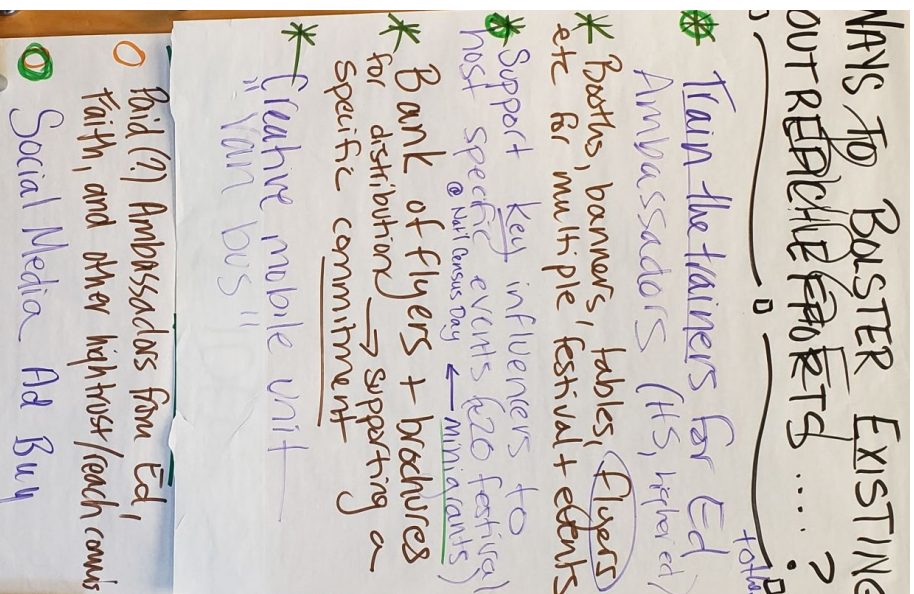 WANS TO BOLSTER EXISTING
OUTREACH EFFORTS....?
Train the trainers for Ed
Ambassadors (HS, higher ed)
Booths, banners, tables, flyers
etc for multiple festival + events
Support key influencers to
host specific events (e.g. festival
@ Nat'l Census Day ← minigrants)
Bank of flyers + brochures
for distribution → supporting a
specific commitment
Creative mobile unit
"Van bus"
Paid (?) Ambassadors from Ed,
Faith, and other hightrust/reach comm's
Social Media Ad Buy